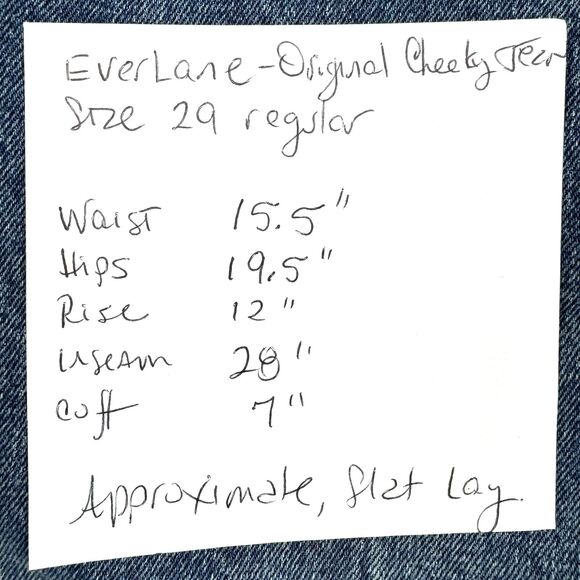 EverLane - Original Cheeky Jean
Size 29 regular
Waist 15.5"
Hips 19.5"
Rise 12"
Inseam 28"
Cuff 7"
Approximate, flat lay.